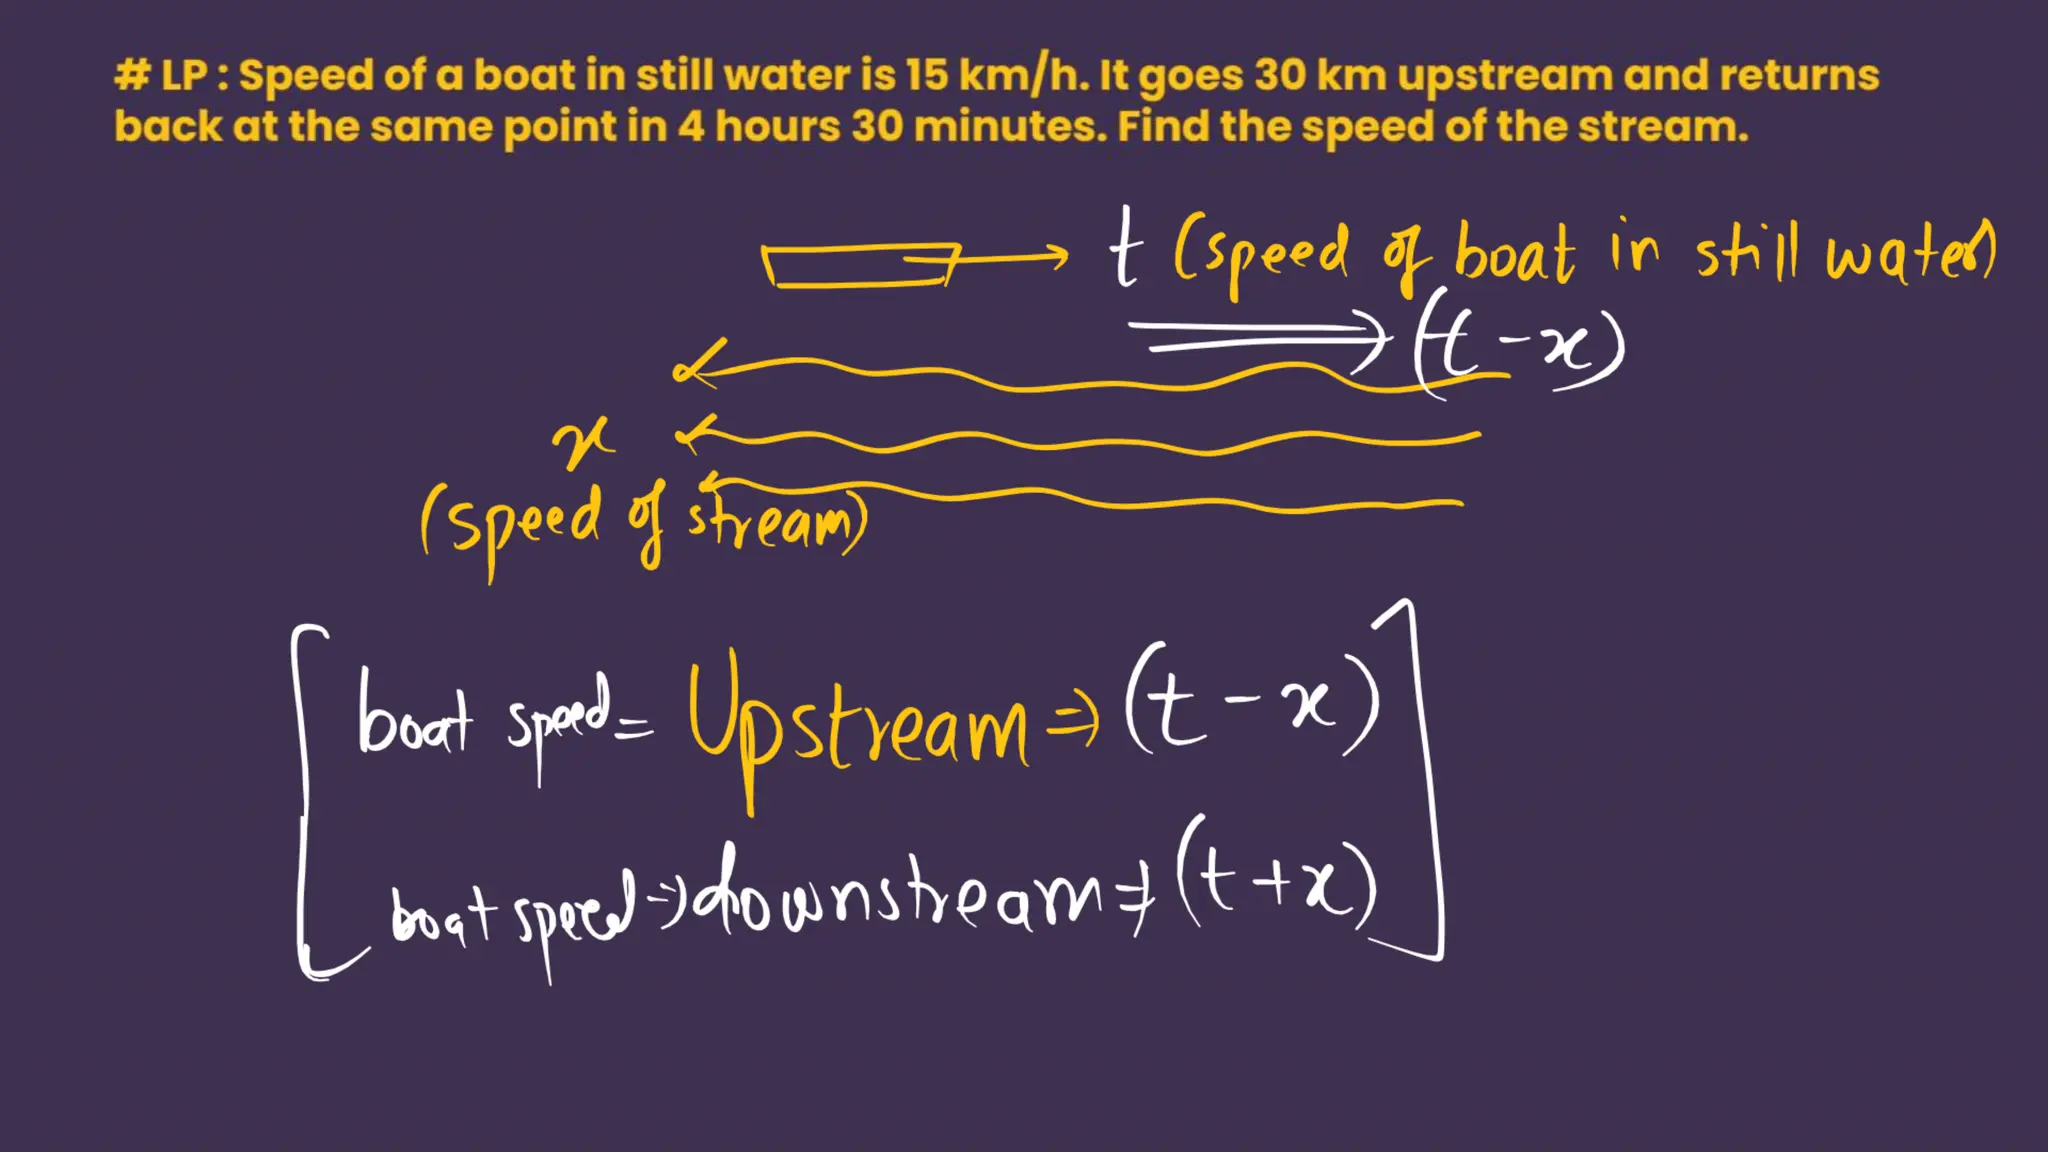 # LP : Speed of a boat in still water is 15 km/h. It goes 30 km upstream and returns
back at the same point in 4 hours 30 minutes. Find the speed of the stream.
t (speed of boat in still water)
(t - x)
x
(speed of stream)
boat speed = Upstream ⇒ (t - x)
boat speed ⇒ downstream ⇒ (t + x)